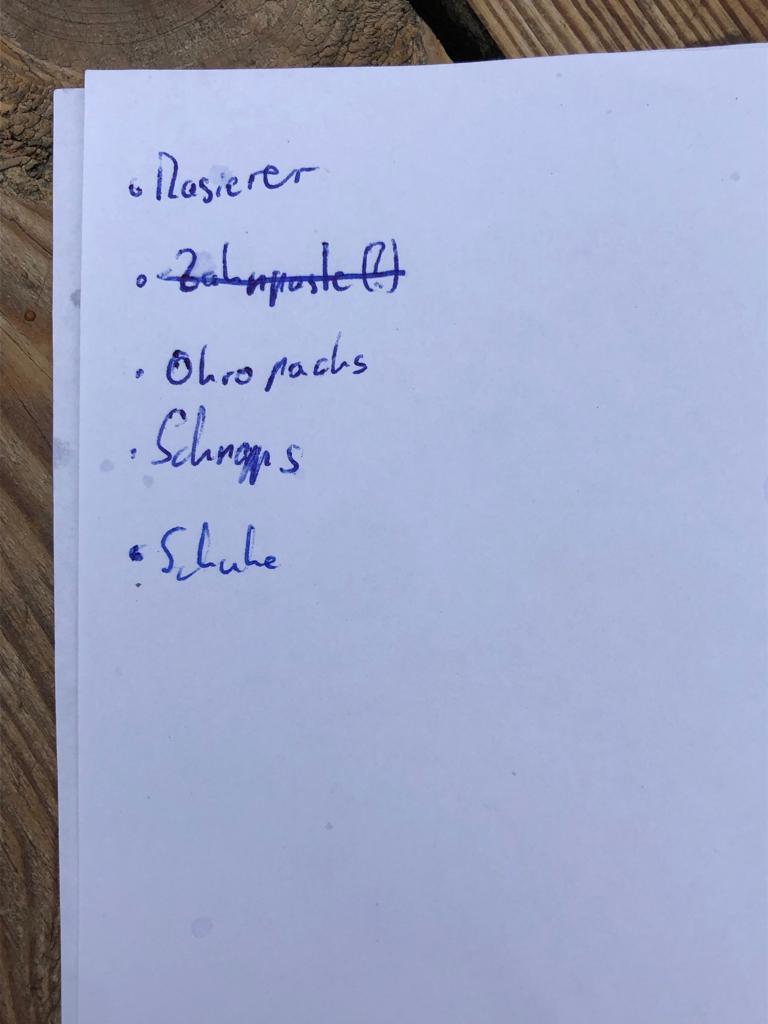 • Rasierer
• Zahnpaste (?)
• Ohropacks
• Schnapps
• Schuhe